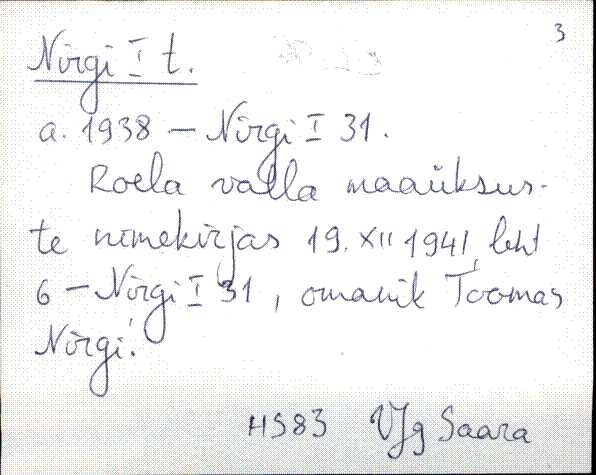 3
Nõrgi I t.
a. 1938 – Nõrgi I 31.
Roela valla maaüksus-
te nimekirjas 19. XII 1941, leht
6 – Nõrgi I 31, omanik Toomas
Nõrgi.
HS83 VJg Saara